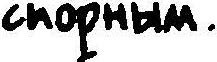 спорным.